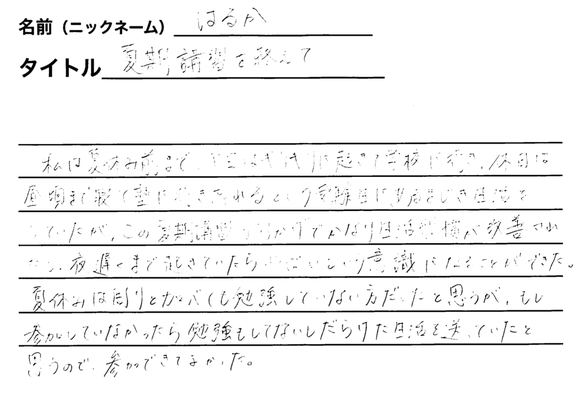 名前（ニックネーム） はるか
タイトル 夏期講習を終えて
私は夏休み前まで、平日は 起きて学校に行き、休日は
昼頃まで寝て塾に行き 遅れるという受験生にあるまじき生活を
していたが、この夏期講習のおかげでかなり生活習慣が改善され
夜遅くまで起きていたら いという意識になることができた。
夏休みは周りとかべても勉強していない方だったと思うが、もし
参加していなかったら勉強もしてないしだらけた生活を送っていたと
思うので、参加できてよかった。